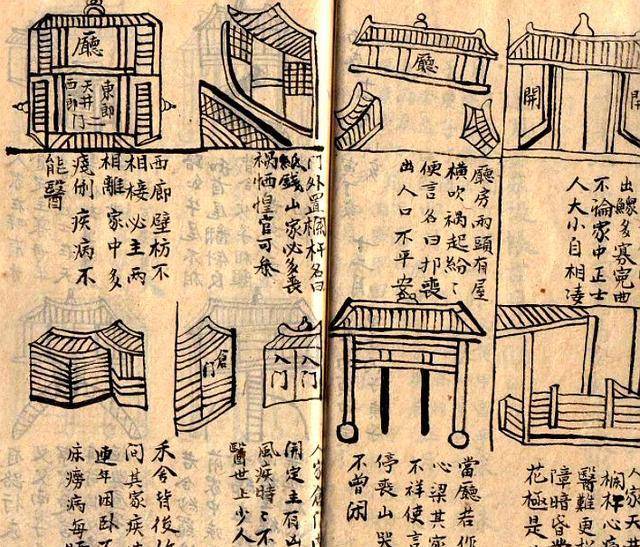 開
開
出鰥多寡寃曲
不論家中正士
人大小自相凌
廳
廳房兩頭有屋
橫吹禍起紛〻
便言名曰喪
出人口不平安
門外置欄杆名曰
紙錢山家必多喪
禍恓惶官可參
廳
東郎
天井
西郎
門二
西廊壁枋不
相接必主兩
相離家中多
疾病不
能醫
人家天井
心痛
醫難更
障暗昏
花極是
當廳若作
心梁其家
不祥使言
停喪山哭
不曾閑
入門
入門
倉門
人家倉門
開定主有凶
風疾時〻不
醫世上少人
禾舍皆後
問其家疾
連年因臥
床癆病每